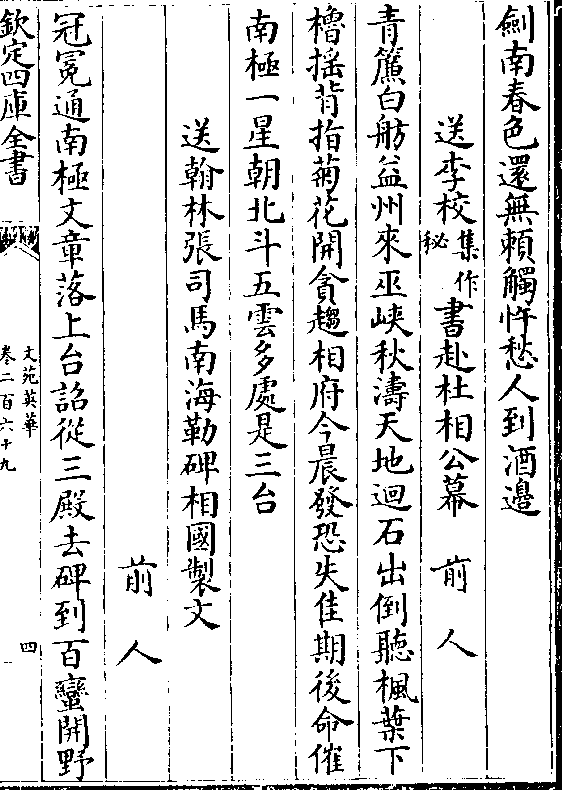 劍南春色還無頼觸忤愁人到酒邉
送李校集作秘書赴杜相公幕　前人
青簾白舫益州來巫峡秋濤天地迴石出倒聽楓葉下
櫓揺背指菊花開貪趨相府今晨發恐失佳期後命催
南極一星朝北斗五雲多處是三台
送翰林張司馬南海勒碑相國製文
前人
冠冕通南極文章落上台詔從三殿去碑到百蠻開野
欽定四庫全書
文苑英華
卷二百六十九
四